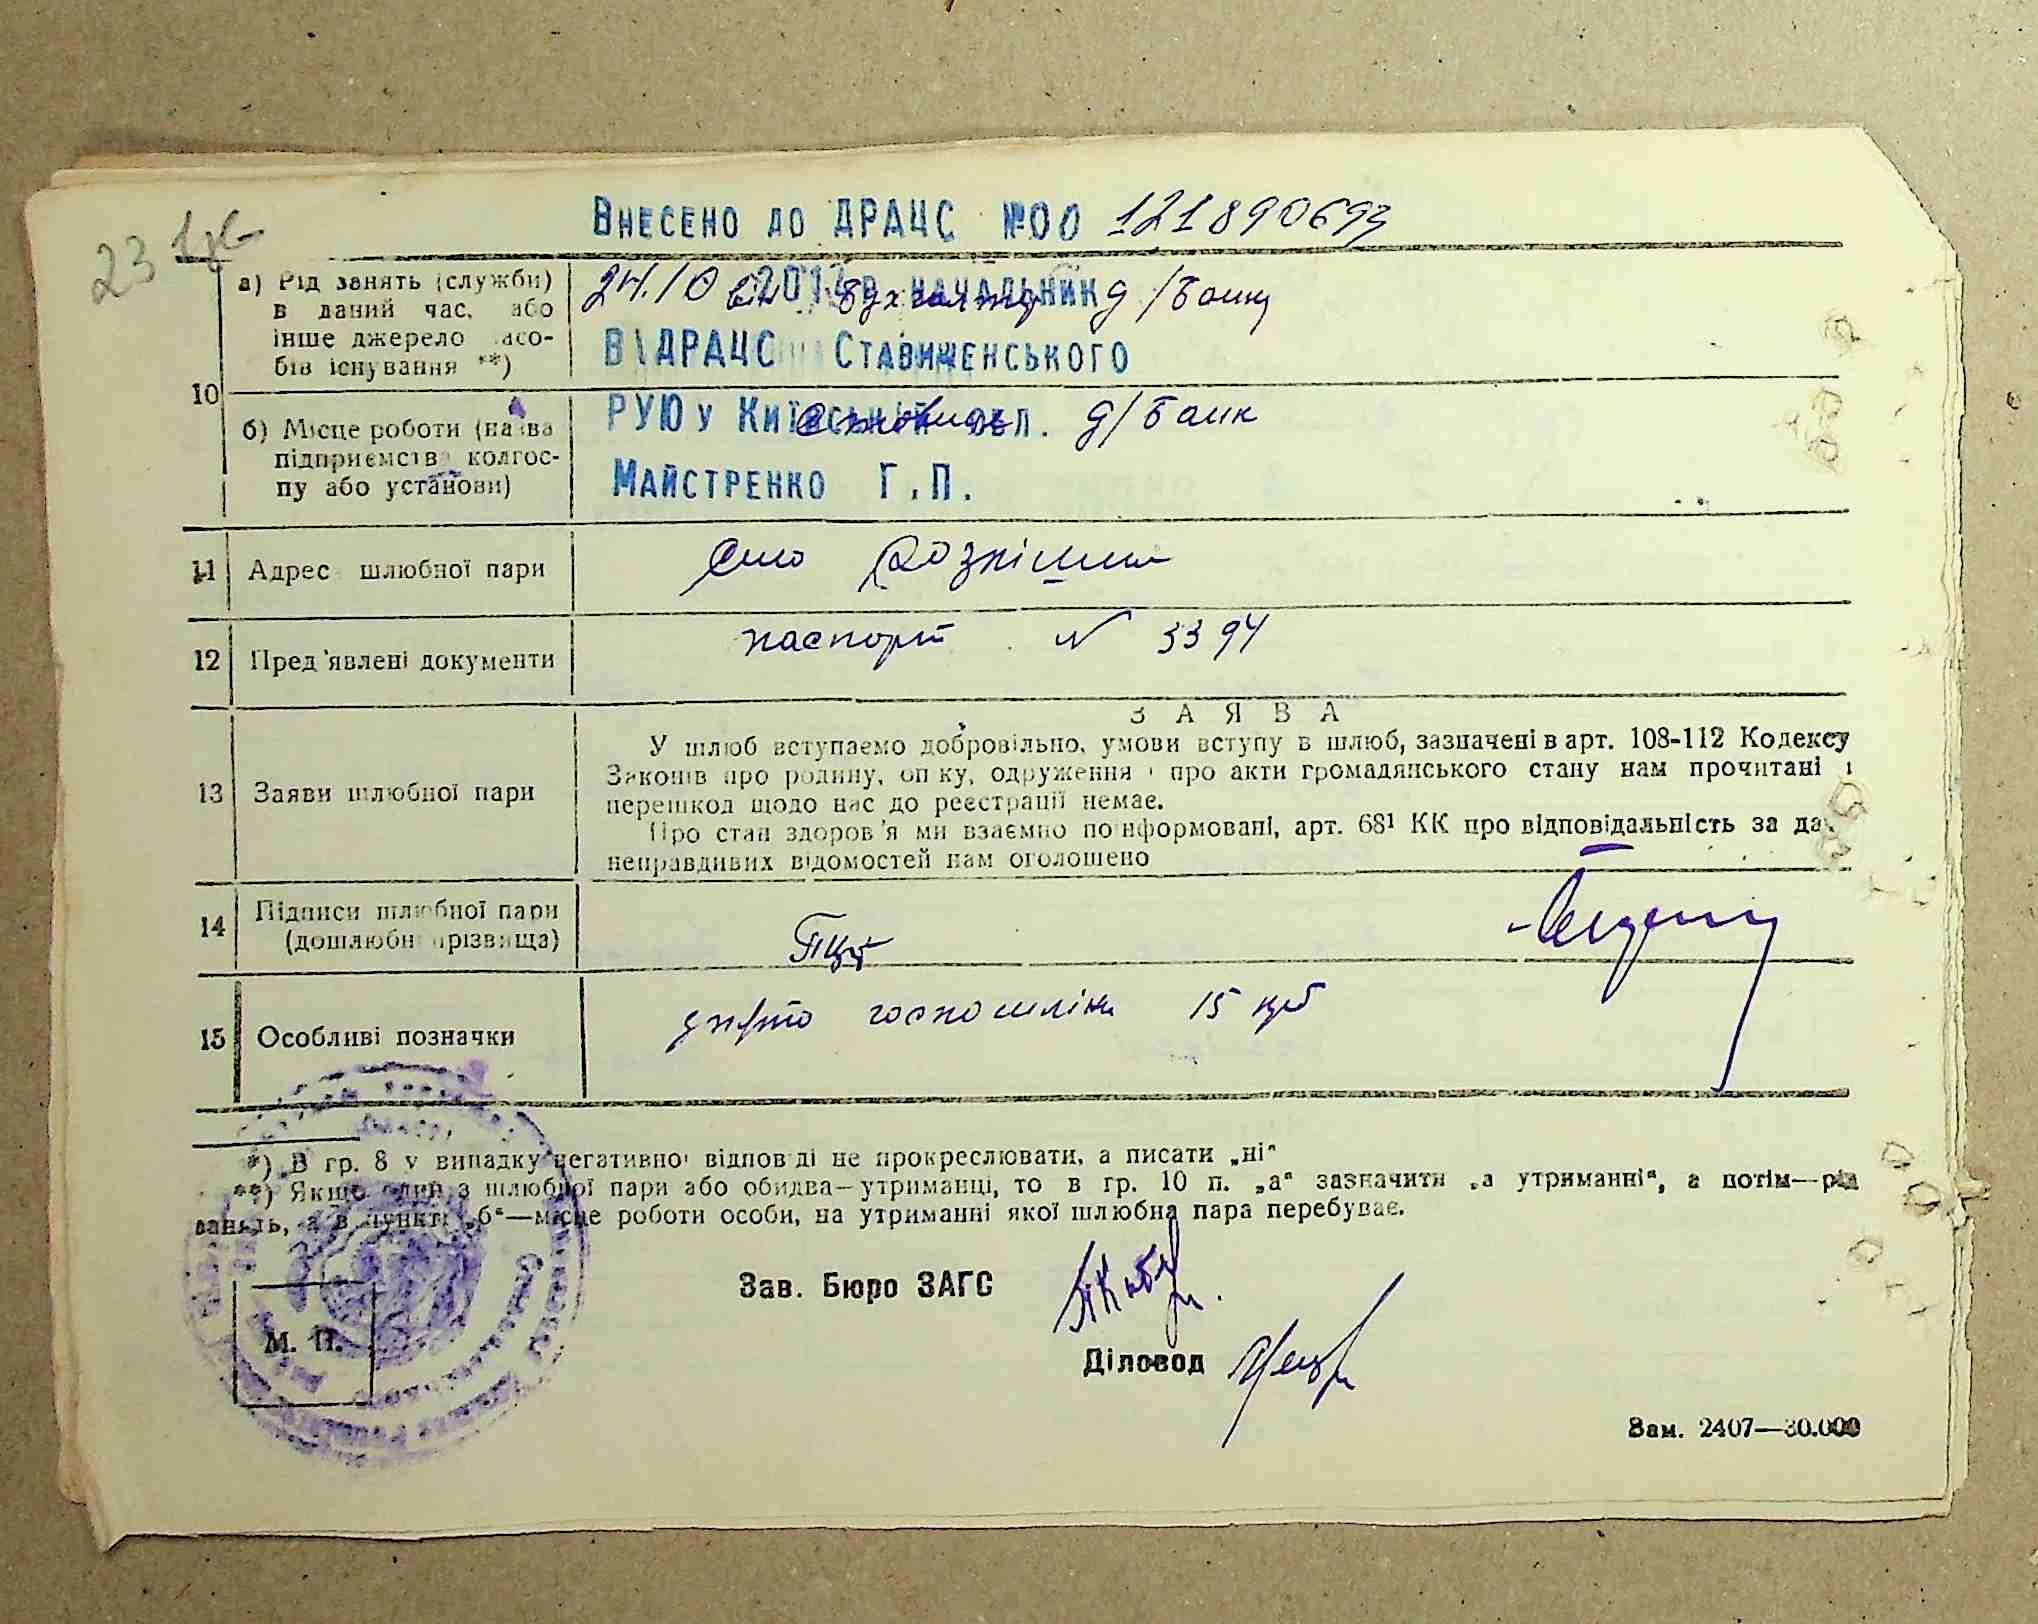 23
Внесено до ДРАЦС №00 121890693
10
а) Рід занять (служби)
в даний час, або
інше джерело засо-
бів існування **)
24.10 2012р. начальник д/Банку
ВДРАЦС Ставищенського
б) Місце роботи (назва
підприємства колгос-
пу або установи)
РУЮ у Київській обл. д/Банк
Майстренко Г.П.
11 Адрес шлюбної пари
село Розкішна
12 Пред'явлені документи
паспорт № 3394
13 Заяви шлюбної пари
ЗАЯВА
У шлюб вступаємо добровільно, умови вступу в шлюб, зазначені в арт. 108-112 Кодексу
Законів про родину, опіку, одруження і про акти громадянського стану нам прочитані і
перешкод щодо нас до реєстрації немає.
Про стан здоров'я ми взаємно поінформовані, арт. 68¹ КК про відповідальність за дачу
неправдивих відомостей нам оголошено
14 Підписи шлюбної пари
(дошлюбні прізвища)
15 Особливі позначки
узято госпошліни 15 крб
*) В гр. 8 у випадку негативної відповіді не прокреслювати, а писати „ні“
**) Якщо один з шлюбної пари або обидва—утриманці, то в гр. 10 п. „а“ зазначити „а утриманні“, а потім—рід
занять, а в пункті „б“—місце роботи особи, на утриманні якої шлюбна пара перебуває.
Зав. Бюро ЗАГС
М. П.
Діловод
Зам. 2407—30.000